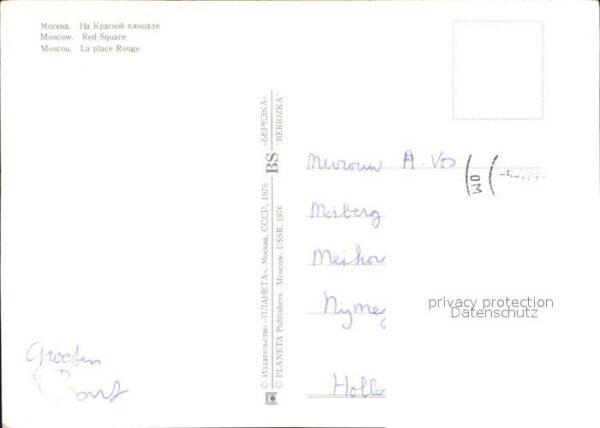 Москва. На Красной площади
Moscow. Red Square
Moscou. La place Rouge
© Издательство «ПЛАНЕТА». Москва, СССР, 1976
© PLANETA Publishers. Moscow, USSR, 1976
BS «БЕРЕЗКА»
"BERIOZKA"
Mevrouw A. Vos
Meiberg
Meihor
Nijmeg
Holla
Groeten
privacy protection
Datenschutz